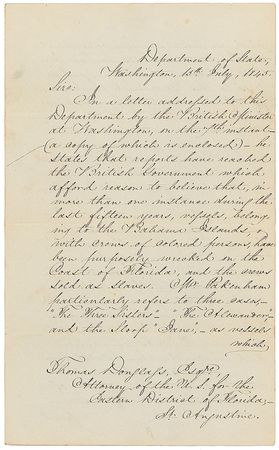 Department of State,
Washington, 10th July, 1845.
Sir:
In a letter addressed to this
Department by the British Minister
at Washington, on the 7th instant
(a copy of which is enclosed) – he
states that reports have reached
the British Government which
afford reason to believe that, in
more than one instance during the
last fifteen years, vessels, belong-
ing to the Bahama Islands, or
with crews of colored persons, have
been purposely wrecked on the
Coast of Florida, and the crews
sold as slaves. Mr Pakenham
particularly refers to three cases –
"The Three Sisters" – "The Alexander" –
and the Sloop "Jane;" – as vessels
which
Thomas Douglass, Esqre,
Attorney of the U.S. for the
Eastern District of Florida,
St. Augustine.